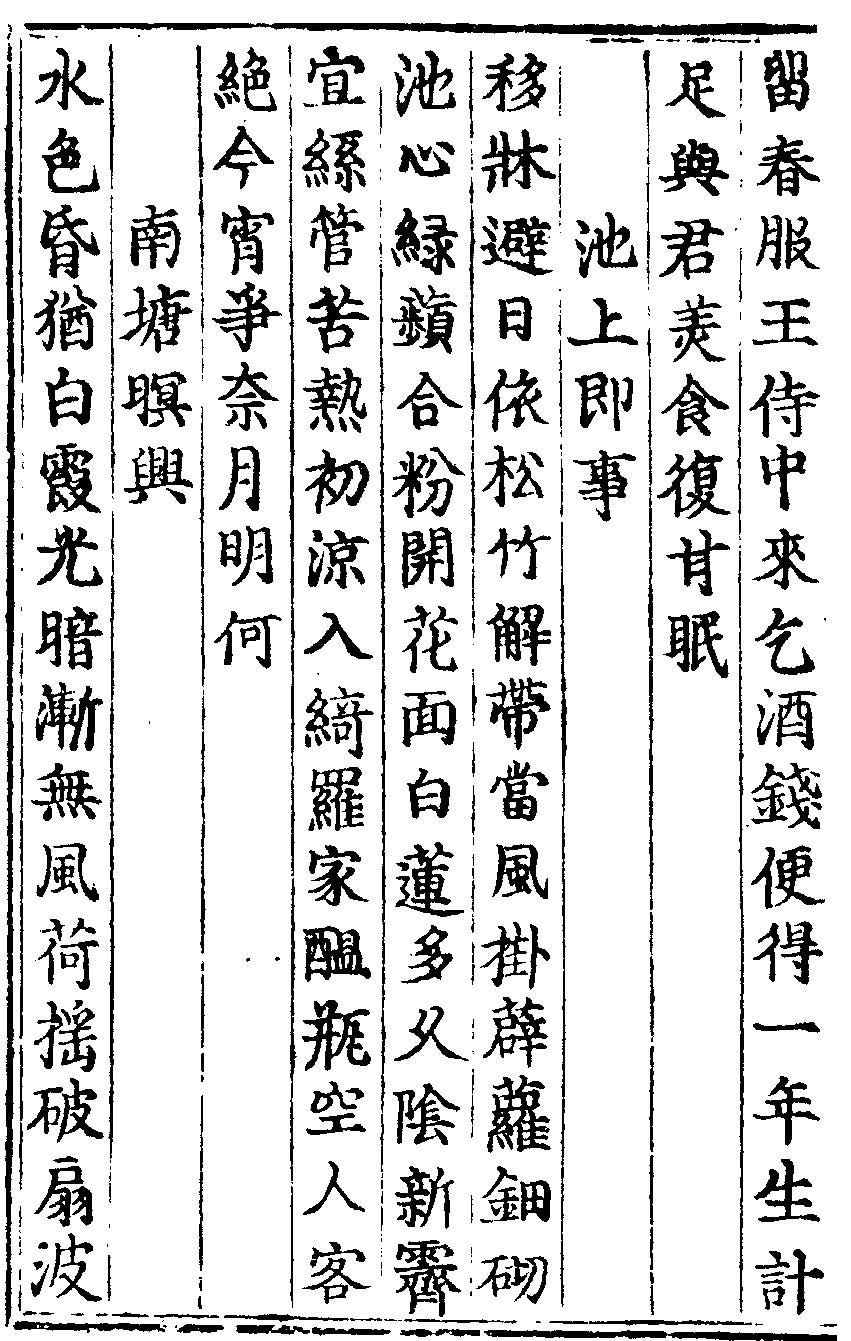 留春服王侍中來乞酒錢便得一年生計
足與君美食復甘眠
池上即事
移牀避日依松竹解帶當風掛薜蘿鈿砌
池心緑蘋合粉開花面白蓮多久陰新霽
宜絲管苦熱初涼入綺羅家醖瓶空人客
絶今宵爭奈月明何
南塘暝興
水色昏猶白霞光暗漸無風荷揺破扇波